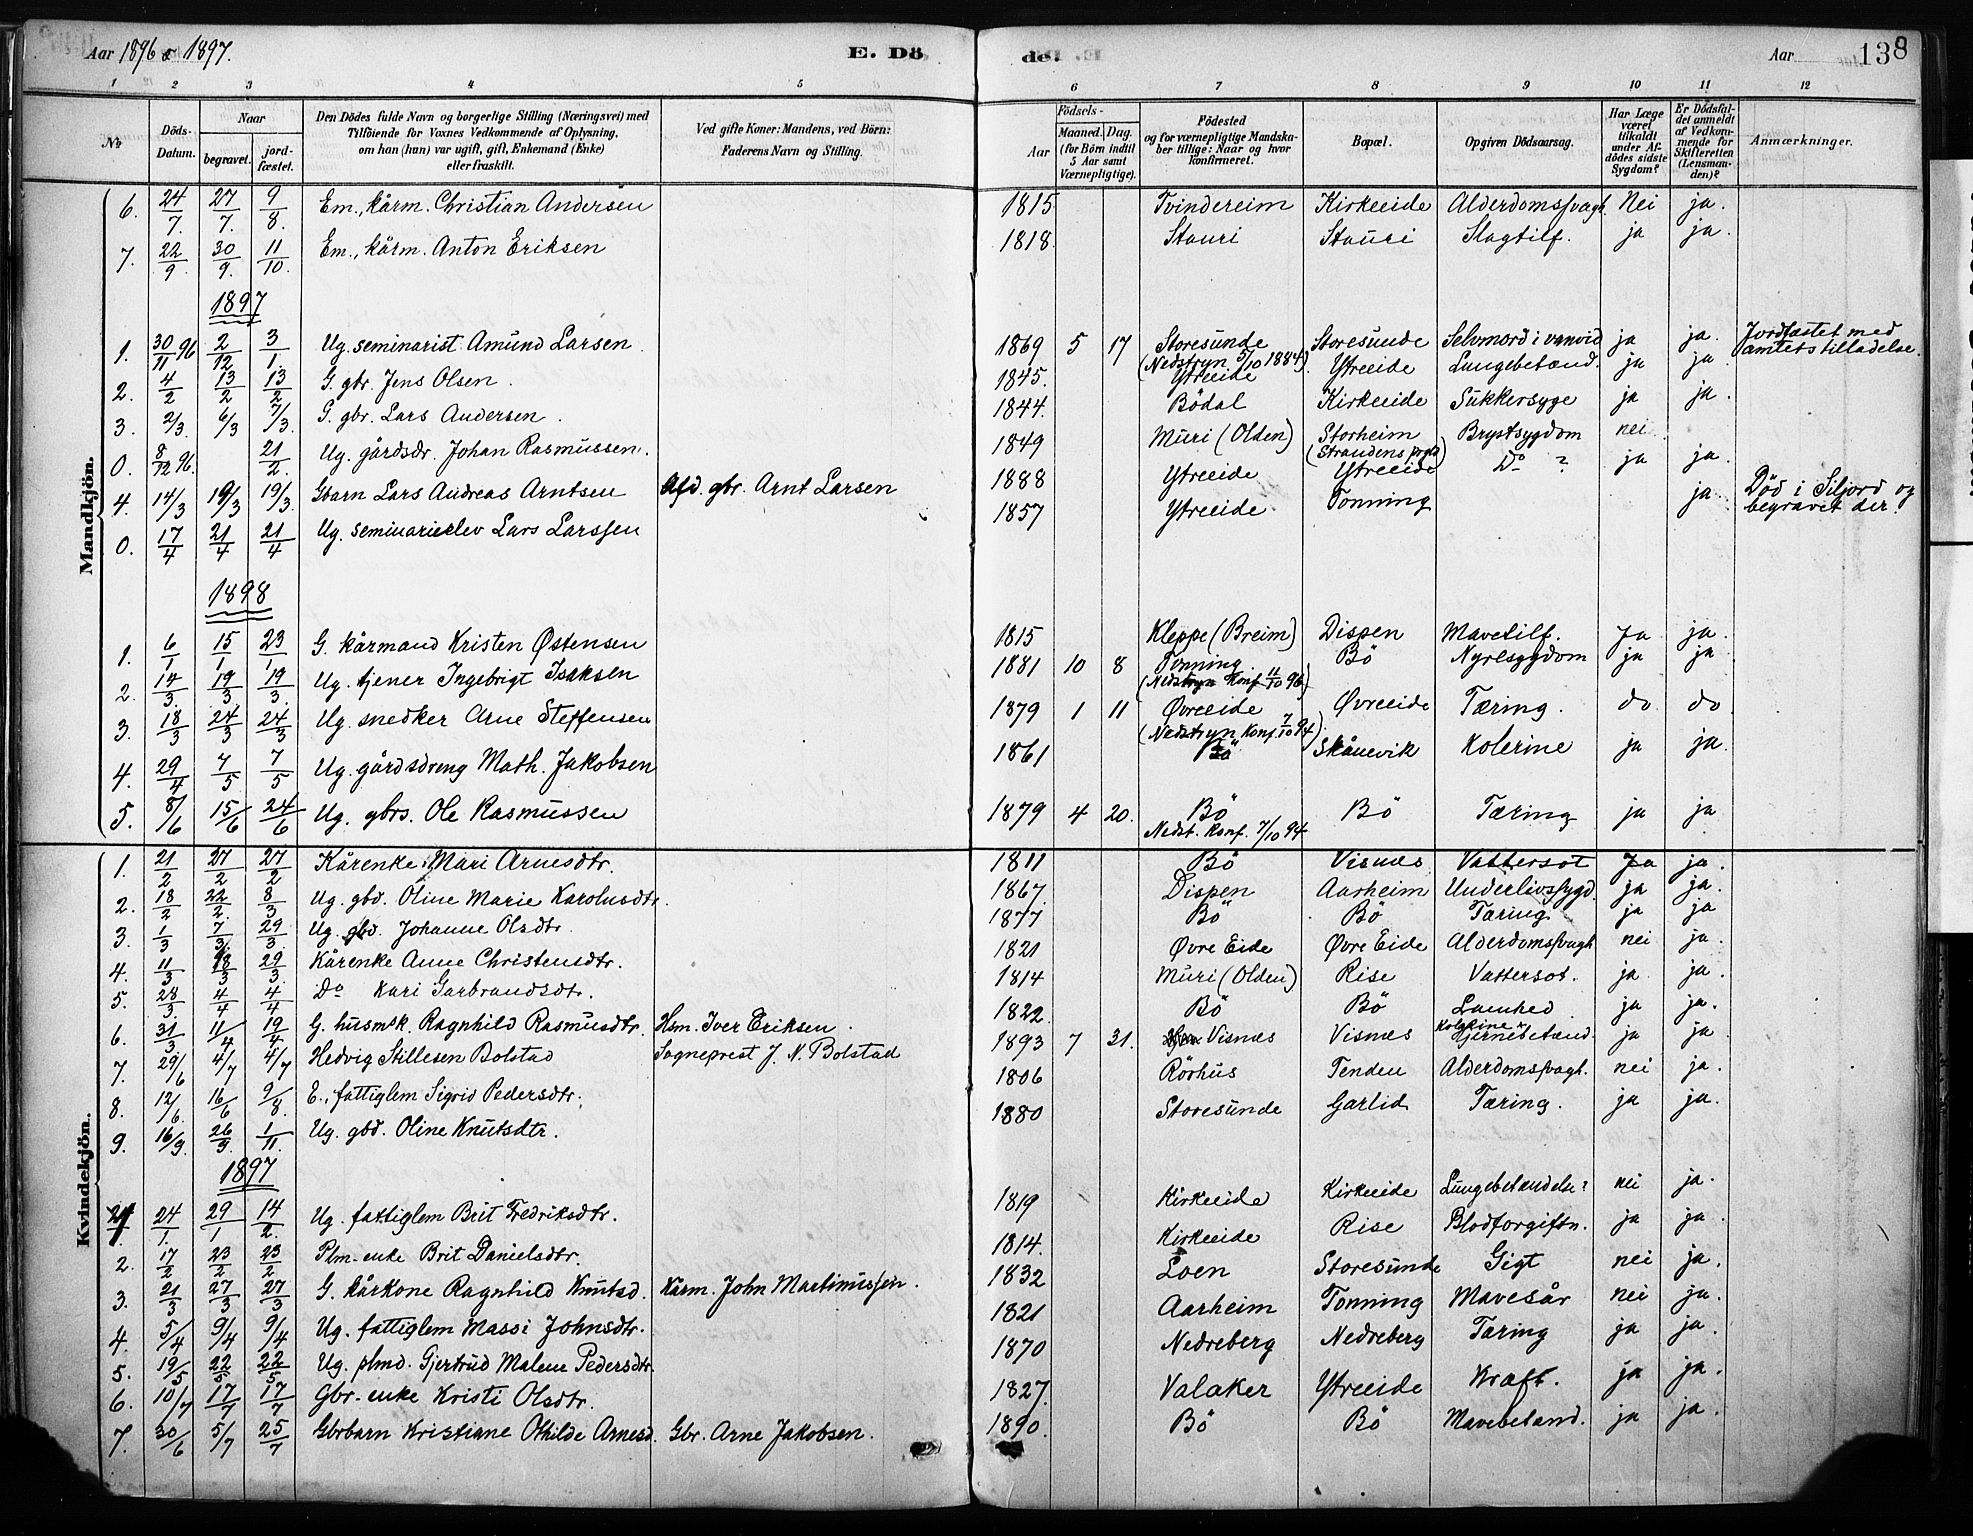 Aar 1896 & 1897.
E. Dö
de.
Aar
138
1 2 3 4 5 6 7 8 9 10 11 12
No
Döds-Datum.
Naar
begravet.
jord-fæstet.
Den Dödes fulde Navn og borgerlige Stilling (Næringsvei) med
Tilföiende for Voxnes Vedkommende af Oplysning,
om han (hun) var ugift, gift, Enkemand (Enke)
eller fraskilt.
Ved gifte Koner: Mandens, ved Börn:
Faderens Navn og Stilling.
Födsels-
Aar
Maaned. Dag.
(for Börn indtil
5 Aar samt
Værnepligtige).
Födested
og for værnepligtige Mandska-
ber tillige: Naar og hvor
konfirmeret.
Bopæl.
Opgiven Dödsaarsag.
Har Læge
været
tilkaldt
under Af-
dödes sidste
Sygdom?
Er Dödsfal-
det anmeldt
af Vedkom-
mende for
Skifteretten
(Lensman-
den)?
Anmærkninger.
Mandkjön.
6. 24/7. 27/7. 9/8. Em., kårm. Christian Andersen 1815 Tvindereim Kirkeeide Alderdomssvagh. Nei ja.
7. 22/9. 30/9. 11/10. Em., kårm. Anton Eriksen 1818. Stauri Stauri Slagtilf. ja ja.
1897
1. 30/11 96 2/12 3/1. Ug. seminarist Amund Larsen 1869 5 17 Storesunde (Nedstryn 5/10 1884) Storesunde Selvmord i vanvid ja ja. Jordfæstet med amtets tilladelse.
2. 4/2 13/2 13/2 G. gbr. Jens Olsen. 1845. Ytreeide Ytreeide Lungebetænd. ja ja
3. 2/3. 6/3 7/3. G. gbr. Lars Andersen. 1844. Bödal Kirkeeide Sukkersyge ja ja.
0. 8/12 96. 21/2. Ug. gårdsdr. Johan Rasmussen. 1849 Muri (Olden) Storheim (Strandens prgld) Brystsygdom nei
4. 14/3 19/3 19/3. Gbarn Lars Andreas Arntsen Afd. gbr. Arnt Larsen 1888 Ytreeide Ytreeide Do ? ja ja.
0. 17/4 21/4 21/4 Ug. seminarieelev Lars Larssen 1857 Ytreeide Tonning ja Död i Siljord og begravet der.
1898
1. 6/1 15/1 23/1 G. kårmand Kristen Østensen 1815 Kleppe (Breim) Dispen Mavetilf. Ja ja.
2. 14/3. 19/3 19/3. Ug. tjener Ingebrigt Isaksen 1881 10 8 Tonning (Nedstryn Konf 11/10 96) Bö Nyresygdom ja ja
3. 18/3 24/3 24/3 Ug. snedker Arne Steffensen 1879 1 11 Øvreeide (Nedstryn Konf. 7/10 94) Øvreeide Tæring. do do
4. 29/4 7/5 7/5 Ug. gårdsdreng Math. Jakobsen 1861 Bö Skånevik Kolerine ja ja.
5. 8/6 15/6 24/6 Ug. gbrs. Ole Rasmussen 1879 4 20. Bö Nedst. Konf. 7/10 94 Bö Tæring ja ja
Kvindekjön.
1. 21/2 27/2 27/2 Kårenke Mari Arnesdtr. 1811 Bö Visnæs Vattersot Ja ja.
2. 18/2 22/2. 8/3 Ug. gbd. Oline Marie Karolusdtr. 1867. Dispen Aarheim Underlivssygd. ja ja.
3. 1/3 7/3. 29/3. Ug. gbd. Johanne Olsdtr. 1877 Bö Bö Tæring ja ja
4. 11/3 18/3 29/3 Kårenke Anne Christensdtr. 1821 Øvre Eide Øvre Eide Alderdomssvagh nei ja.
5. 28/3 4/4 4/4 Do Kari Garbrandsdtr. 1814 Muri (Olden) Rise Vattersot. ja ja.
6. 31/3 11/4 19/4 G. husmk. Ragnhild Rasmusdtr. Hsm. Iver Eriksen. 1822. Bö Bö Lamhed. ja ja.
7. 29/6 4/7 4/7 Hedvig Stillesen Bolstad Sogneprest J. N. Bolstad 1893 7 31. Visnæs Visnæs Kolerine Hjernebetænd. ja ja
8. 12/6. 16/6 9/8. E., fattiglem Sigrid Pedersdtr. 1806 Rörhus Tenden Alderdomssvagh. nei ja.
9. 16/9. 26/9 1/11. Ug. gbd. Oline Knutsdtr. 1880 Storesunde Garlid Tæring. ja ja.
1897
1. 24/1. 29/1 14/2. Ug. fattiglem Brit Fredriksdtr. 1819 Kirkeeide Kirkeeide Lungebetændelse? nei ja.
2. 17/2 23/2 23/2 Plm-enke Brit Danielsdtr. 1814. Kirkeeide Rise Blodforgiftn. ja ja.
3. 21/3 27/3 27/3 G. kårkone Ragnhild Knutsd. Kårm. John Martinussen. 1832 Loen Storesunde Gigt nei ja.
4. 5/4 9/4 9/4 Ug. fattiglem Massi Johnsdtr. 1821 Aarheim Tonning Mavesår nei ja.
5. 19/5 22/5 22/5 Ug. plmd. Gjertrud Malene Pedersdtr. 1870 Nedreberg Nedreberg Tæring ja ja.
6. 10/7 17/7 17/7 Gbr-enke Kristi Olsdtr. 1827. Valaker Ytreeide Kræft. ja ja.
7. 30/6 5/7 25/7 Gbrbarn Kristiane Othilde Arnesd. Gbr. Arne Jakobsen. 1890. Bö Bö Mavebetænd. ja ja.